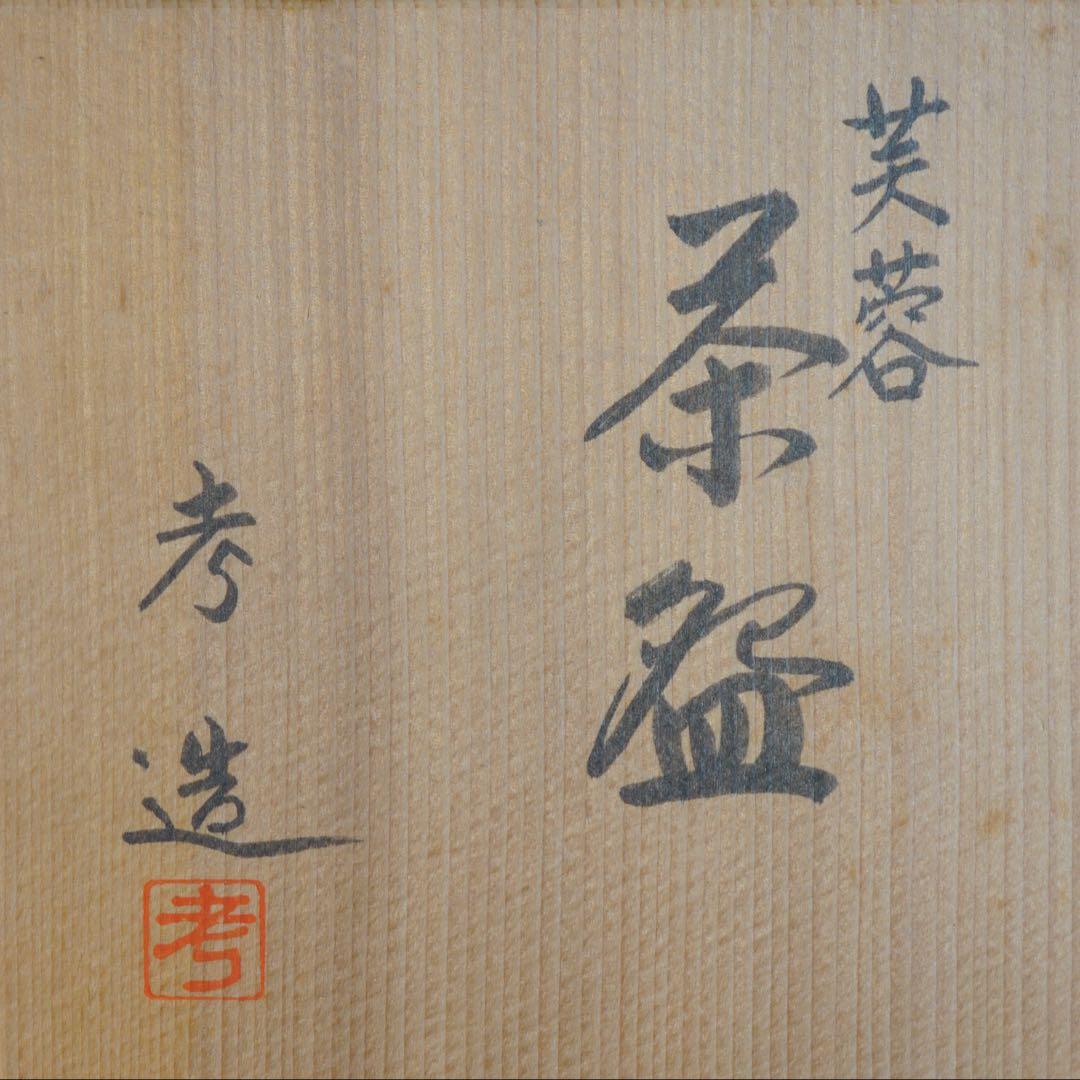 芙蓉
茶盌
考造
考